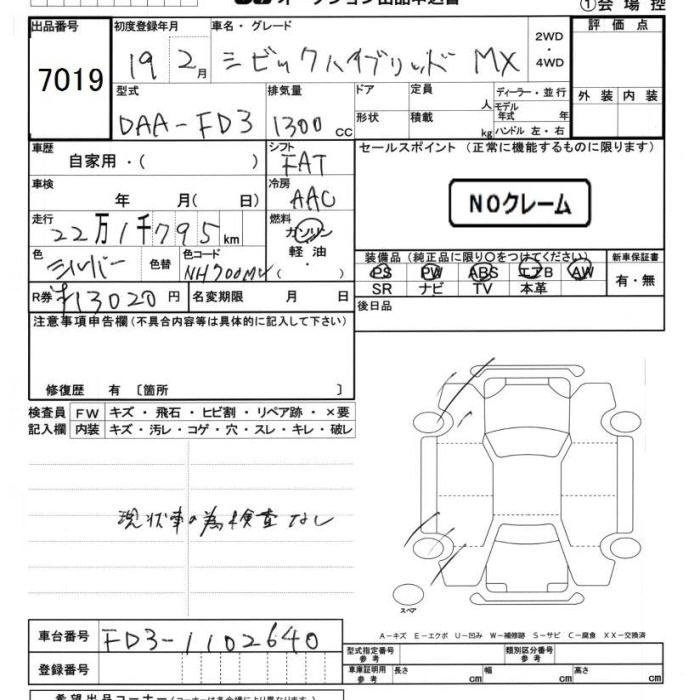 オークション出品申込書
①会場控
出品番号 初度登録年月 車名・グレード 2WD・4WD 評価点
7019 19 2月 シビックハイブリッド MX
型式 排気量 ドア 定員 人 ディーラー・並行 外装 内装
DAA-FD3 1300cc 形状 積載 kg モデル年式 年
ハンドル 左・右
車歴 シフト セールスポイント (正常に機能するものに限ります)
自家用・( ) FAT
車検 冷房
年 月( 日) AAC NOクレーム
走行 燃料
22万1千795km ガソリン
軽油
・( )
色 色替 色コード 装備品(純正品に限り○をつけてください) 新車保証書
シルバー NH700MV PS PW ABS エアB AW 有・無
SR ナビ TV 本革
R券 ¥13020円 名変期限 月 日 後日品
注意事項申告欄(不具合内容等は具体的に記入して下さい)
修復歴 有 〔箇所 〕
検査員 FW キズ・飛石・ヒビ割・リペア跡・×要
記入欄 内装 キズ・汚レ・コゲ・穴・スレ・キレ・破レ
現状車の為検査なし
スペア
A-キズ E-エクボ U-凹み W-補修跡 S-サビ C-腐食 XX-交換済
車台番号 FD3-1102640
型式指定番号 参考 類別区分番号 参考
登録番号 車庫証明用 参考 長さ cm 幅 cm 高さ cm
希望出品コーナー(コーナーは各会場により異なります)